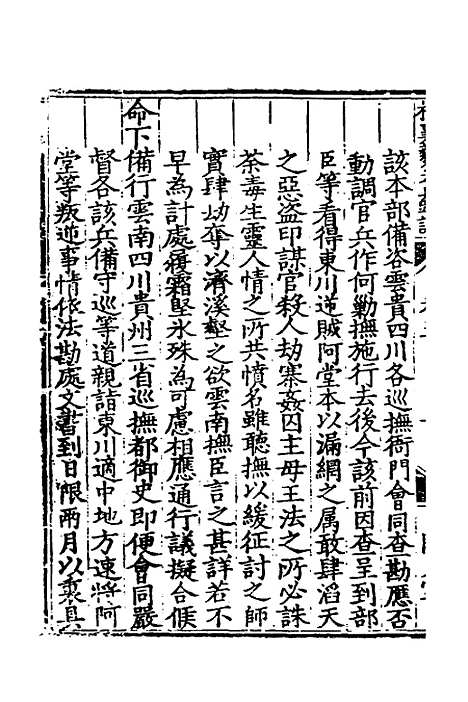 該本部備咨雲貴四川各巡撫衙門會同查勘應否
動調官兵作何勦撫施行去後今該前因查呈到部
臣等看得東川逆賊阿堂本以漏網之属敢肆滔天
之惡盜印謀官殺人劫寨姦囚主母王法之所必誅
荼毒生靈人情之所共憤名雖聽撫以緩征討之師
實肆刧奪以濟溪壑之欲雲南撫臣言之甚詳若不
早為計處履霜堅氷殊為可慮相應通行議擬合候
命下備行雲南四川貴州三省巡撫都御史即便會同嚴
督各該兵備守巡等道親詣東川適中地方速將阿
堂等叛逆事情依法勘處文書到日限兩月以裏具